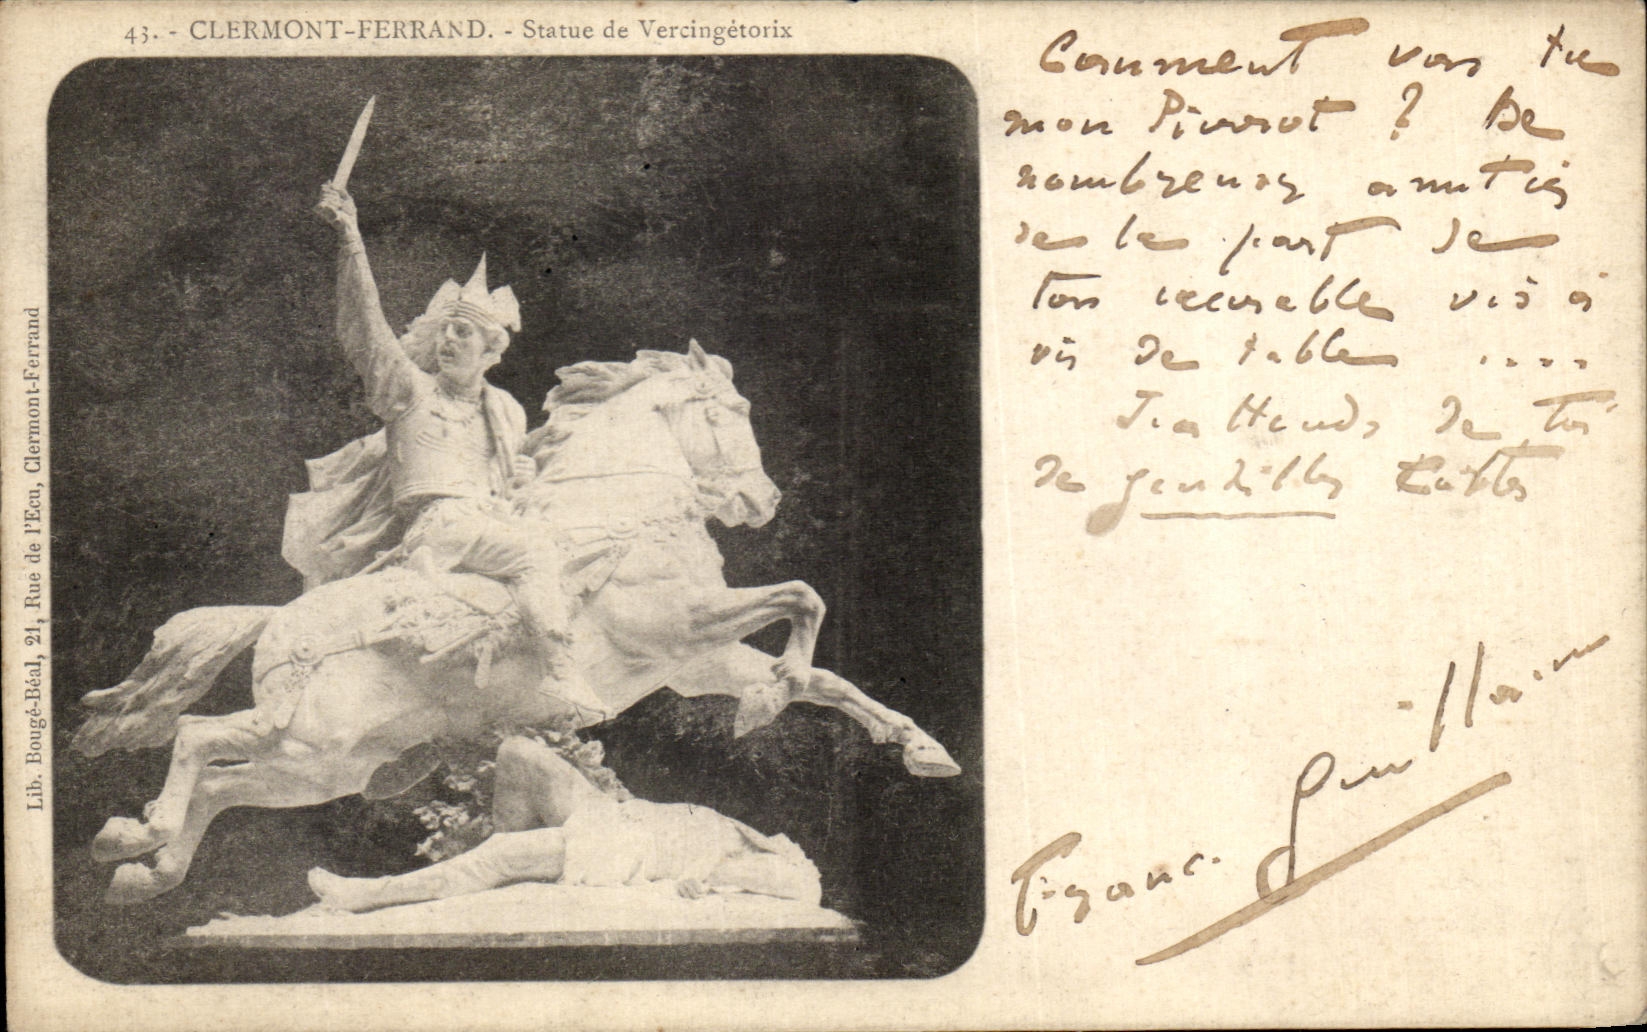 43. - CLERMONT-FERRAND. - Statue de Vercingétorix
Lib. Bougé-Béal, 21, Rue de l'Ecu, Clermont-Ferrand
Comment vas tu
mon Pivorot ? De
nombreuses amitiés
de la part de
ton vis à
vis de table ....
J'attends de toi
de gentilles
Guillain
Franc.